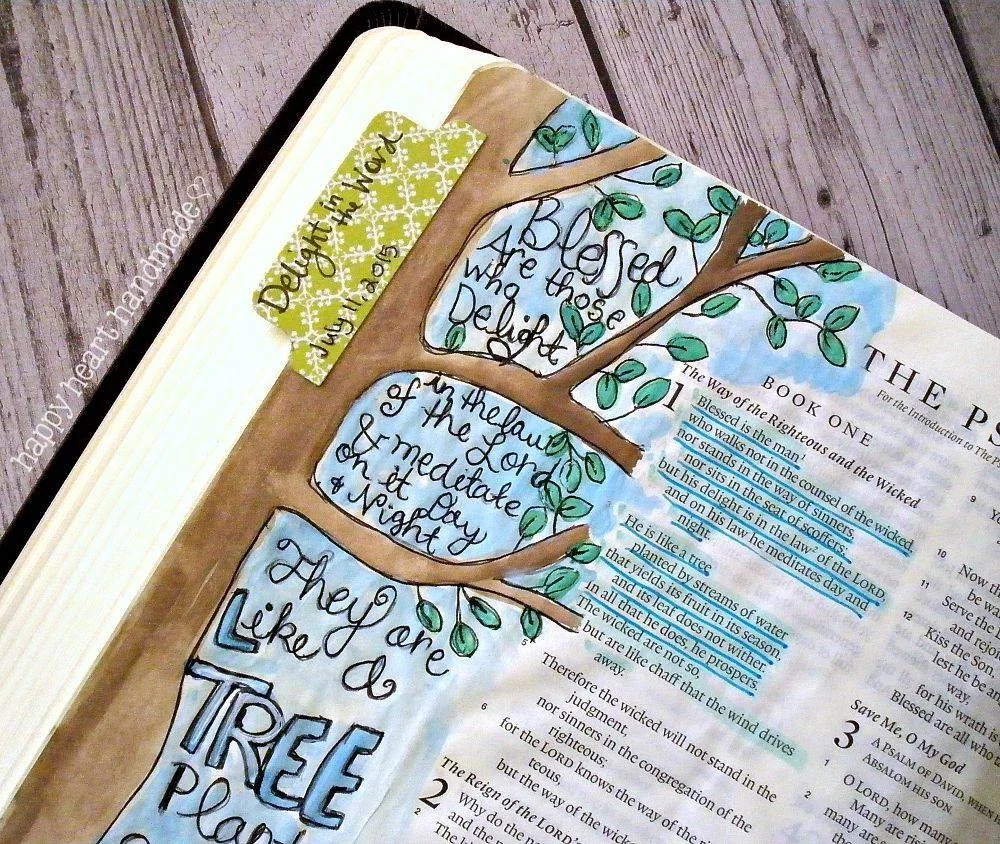 happy heart handmade
Delight in
the Word
July 11, 2015
Blessed
Are those
who
Delight
in the law
of the Lord
& meditate
on it Day
& Night
They are
Like a
TREE
THE
For the Introduction to The
BOOK ONE
The Way of the Righteous and the Wicked
1
Blessed is the man1
who walks not in the counsel of the wicked,
nor stands in the way of sinners,
nor sits in the seat of scoffers;
but his delight is in the law2 of the LORD
and on his law he meditates day and
night.
He is like a tree
planted by streams of water
that yields its fruit in its season,
and its leaf does not wither.
In all that he does, he prospers.
The wicked are not so,
but are like chaff that the wind drives
away.
5
Therefore the wicked will not stand in the
judgment,
nor sinners in the congregation of the
righteous;
6 for the LORD knows the way of the
teous,
but the way of the
The Reign of the LORD's
2
Why do the
2
and the
9
10 Now th
be w
11 Serve the
and rejoi
12 Kiss the Son,
lest he be
way,
for his wrath is
Blessed are all who
Save Me, O My God
3
A PSALM OF DAVID, WHEN
ABSALOM HIS SON.
1 O LORD, how many
Many are
2 many are